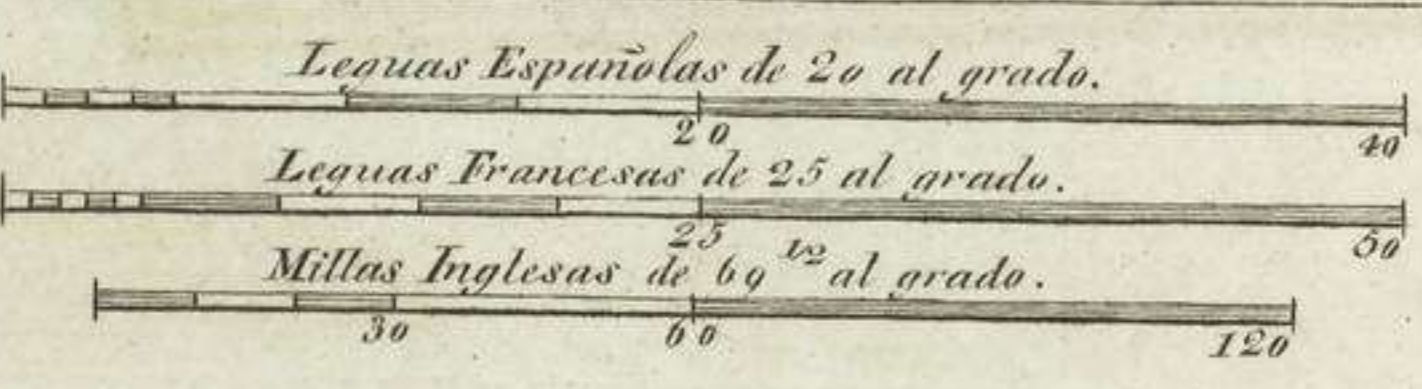 Leguas Españolas de 20 al grado.
20 40
Leguas Francesas de 25 al grado.
25 50
Millas Inglesas de 69 1/2 al grado.
30 60 120